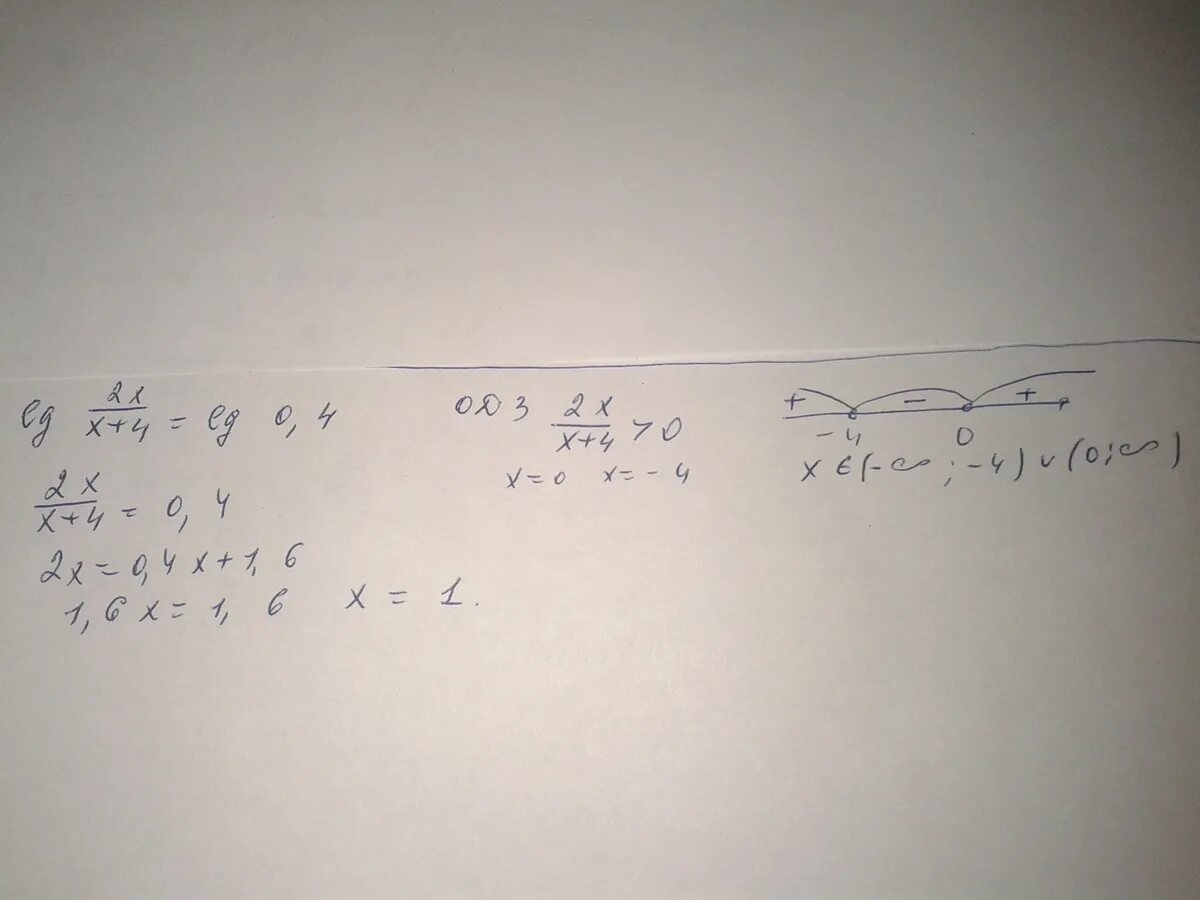 lg 2x/x+4 = lg 0,4
2x/x+4 = 0,4
2x=0,4x+1,6
1,6x=1,6 x = 1.
ОДЗ 2x/x+4 >0
x=0 x=-4
+ - +
-4 0
x∈(-∞;-4)∪(0;∞)